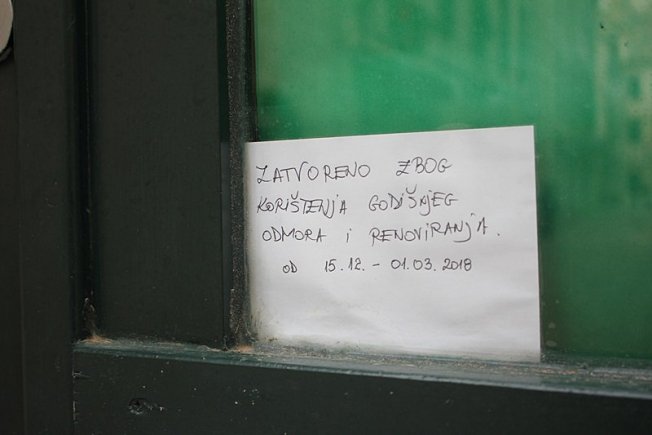 ZATVORENO ZBOG
KORIŠTENJA GODIŠNJEG
ODMORA i RENOVIRANJA.
OD 15.12. - 01.03. 2018